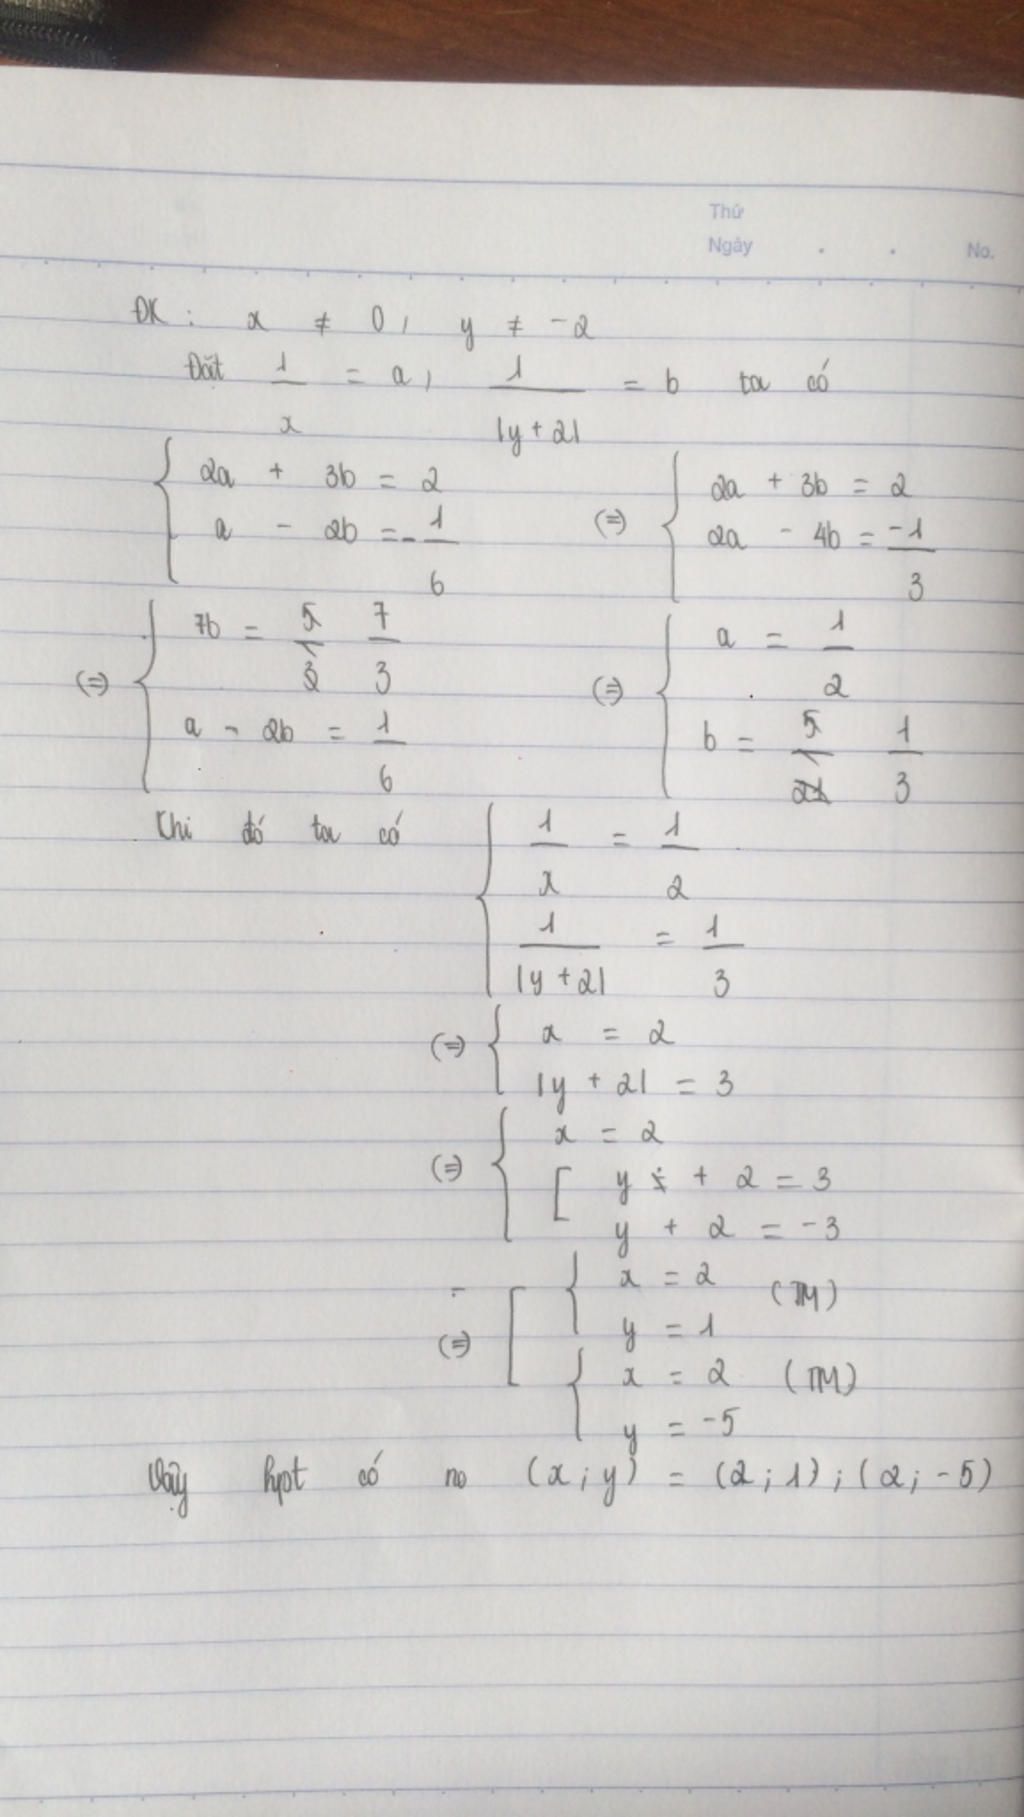 Thứ
Ngày . . No.
ĐK : x ≠ 0, y ≠ -2
Đặt 1/x = a, 1/|y+2| = b ta có
{ 2a + 3b = 2 (=) { 2a + 3b = 2
a - 2b = -1/6 2a - 4b = -1/3
(=) { 7b = 7/3 (=) { a = 1/2
a - 2b = 1/6 b = 1/3
Khi đó ta có { 1/x = 1/2
1/|y+2| = 1/3
(=) { x = 2
|y + 2| = 3
(=) { x = 2
[ y + 2 = 3
y + 2 = -3
(=) [ { x = 2 (TM)
y = 1
{ x = 2 (TM)
y = -5
Vậy hpt có no (x; y) = (2; 1); (2; -5)